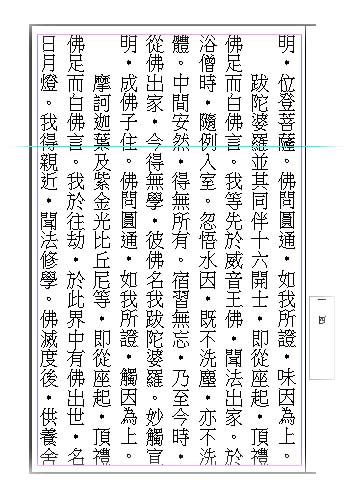 明‧位登菩薩。佛問圓通‧如我所證‧味因為上。
跋陀婆羅並其同伴十六開士‧即從座起‧頂禮
佛足而白佛言。我等先於威音王佛‧聞法出家。於
浴僧時‧隨例入室。忽悟水因‧既不洗塵‧亦不洗
體。中間安然‧得無所有。宿習無忘‧乃至今時‧
從佛出家‧今得無學‧彼佛名我跋陀婆羅。妙觸宣
明‧成佛子住。佛問圓通‧如我所證‧觸因為上。
摩訶迦葉及紫金光比丘尼等‧即從座起‧頂禮
佛足而白佛言。我於往劫‧於此界中有佛出世‧名
日月燈。我得親近‧聞法修學。佛滅度後‧供養舍